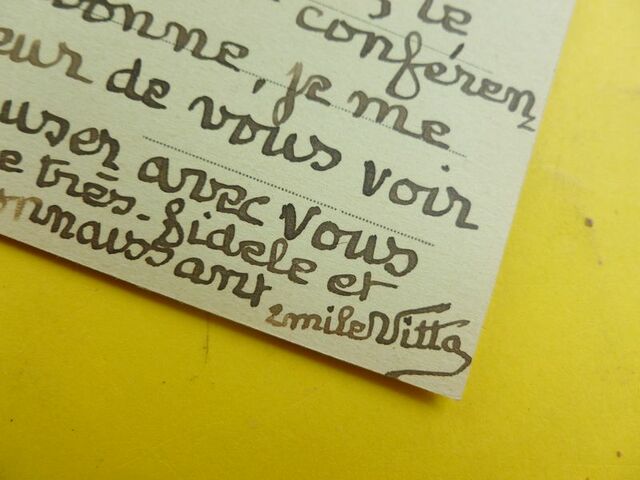 s le
onne, conféren
eur je me
de vous voir
user avec vous
e très fidele et
onnaissant
emile Vitta